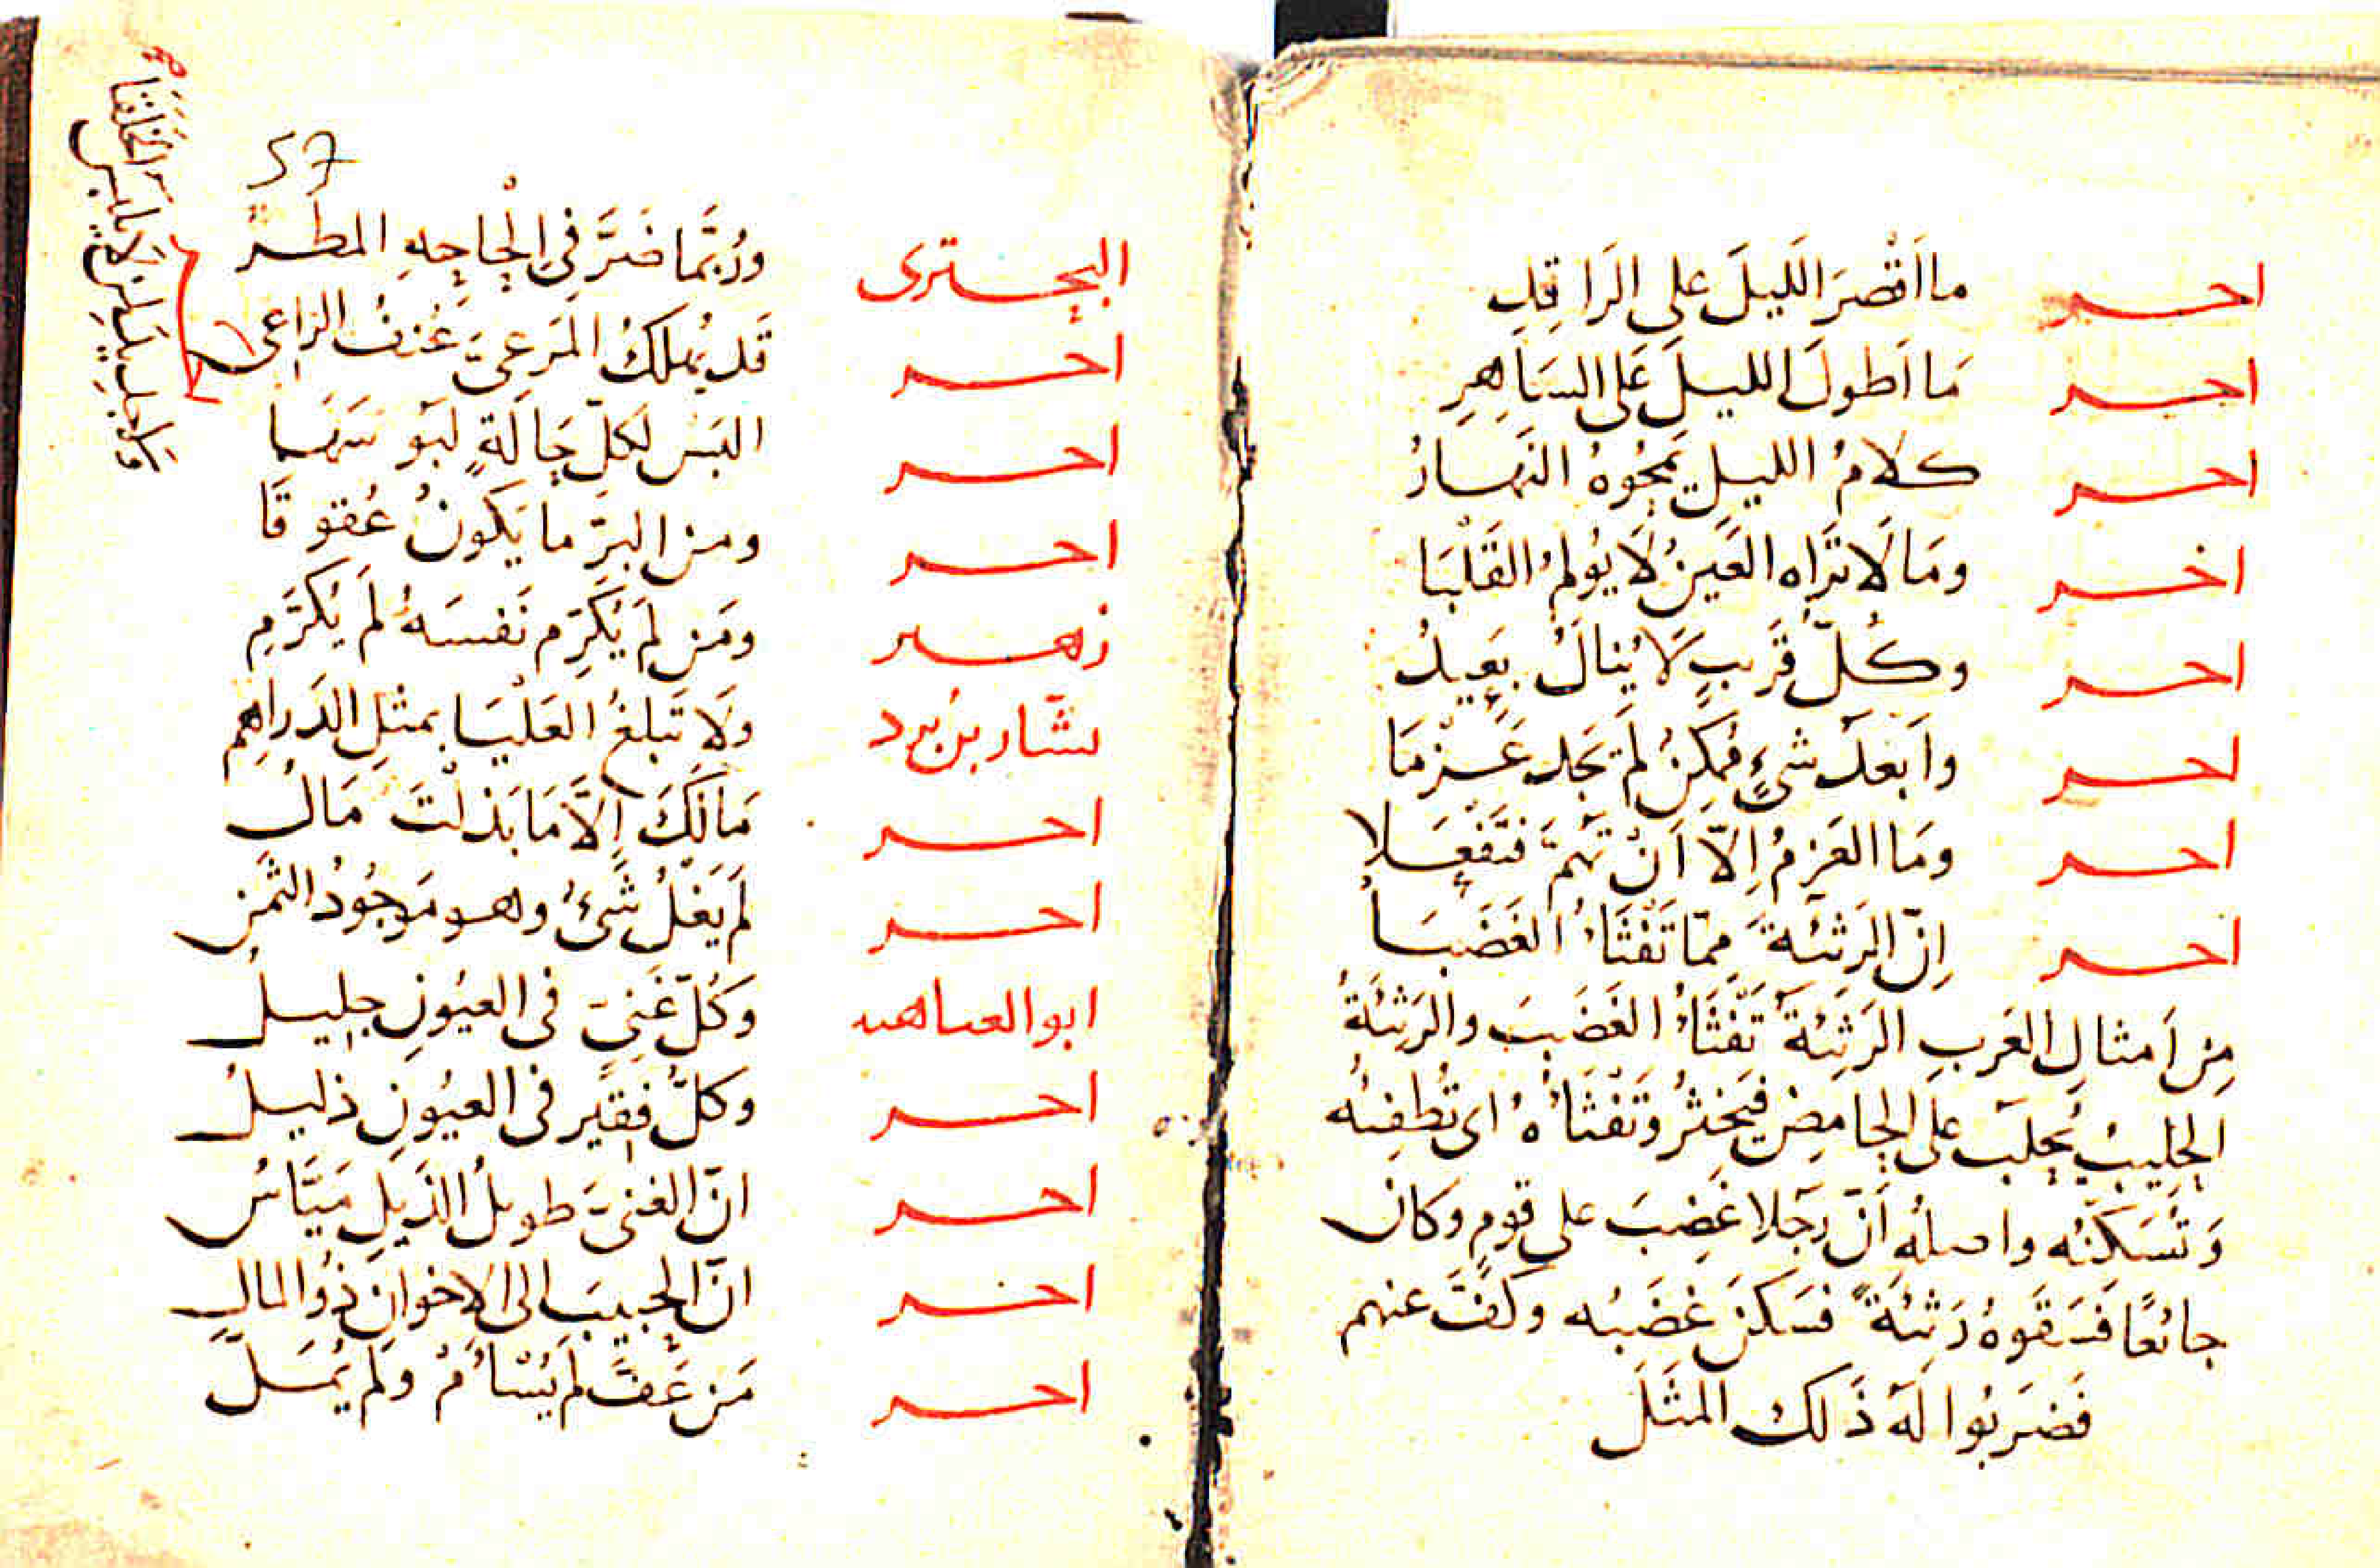 احر ما اَقْصَرَ اللَيلَ على الرَاقِدِ
احر مَا اَطولَ الليلَ عَلى السَاهِرِ
احر كلامُ الليلِ يَمحُوهُ النَهارُ
اخر ومَا لَا تَرَاه العَينُ لَا يُولمُ القَلْبَا
احر وكُلّ قَرِيبٍ لَا يُنالُ بَعِيدُ
احر واَبعَدُ شئٍ مُمكِنٌ لَم تَجِد عَزْمَا
احر ومَا العَزمُ اِلّا اَنْ تَهُمّ فَتَفْعَلا
اخر اِنّ الرَثئَةَ مِمّا تَفْثَاُ الغَضَبَا
مِن اَمثالِ العَربِ الرَثِئةَ تَفْثَاُ الغَضَبَ والرَثِئَةُ
الحَلِيبُ يُحلَبُ عَلى الحامِضِ فيَخثُرُ وَتَفْثَاُهُ اى تُطفِئُه
وَتُسَكّنُه واصلُه اَنّ رَجلا غَضِبَ على قومٍ وَكان
جائعًا فَسَقَوهُ رَثِئَةً فسَكنَ غَضَبُه وكَفَّ عنهم
فَضرَبُوا لَهُ ذَلك المثَلَ
57
البحترى ورُبّمَا ضَرَّ فى اِلْحاحِهِ المطَرُ
احر قَد يُهلكُ المَرعِىَّ عُنفُ الراعى
احر البَسْ لكلّ حَالَةٍ لَبُوسَهَا
احر ومن البِرِّ ما يَكونُ عُقوقَا
زهير ومَن لَم يُكَرِّم نَفسَهُ لَم يُكَرَّمِ
بشّار بن بُرد ولَا تَبلغُ العَلْيَا بمثلِ الدَراهِمِ
احر مَالَكَ اِلّا مَا بَذلْتَ مَالُ
احر لَم يَغْلُ شَئُ وهو مَوجُودُ الثَمَن
ابو العتاهيه وَكُلّ غَنِىّ فى العيُونِ جليلُ
احر وكلّ فقيرٍ فى العيُونِ ذليلُ
احر انّ الغنىّ طويلُ الذَيلِ مَيَّاسُ
اخر انّ الحبيبَ الى الاِخوانِ ذُو المالِ
احر مَن عَفَّ لَم يُسْاَمْ ولَم يُمَلّ